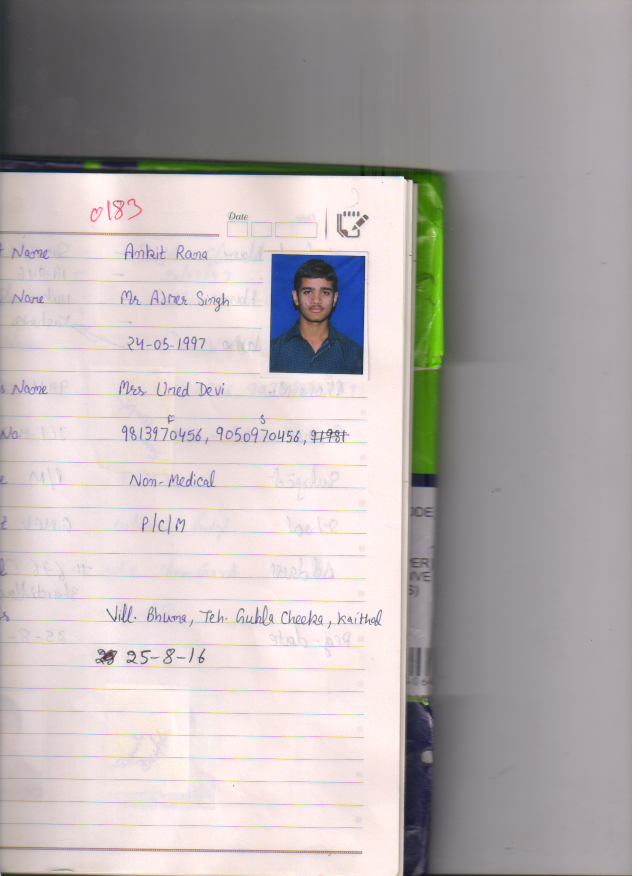 0183
Date
Name Ankit Rana
Name Mr. Ajmer Singh
24-05-1997
s Name Mrs Umed Devi
F S
No 9813970456, 9050970456,
e Non-Medical
P/C/M
s Vill. Bhuna, Teh. Guhla Cheeka, Kaithal
25-8-16
ODE
PER)
IVE
S)